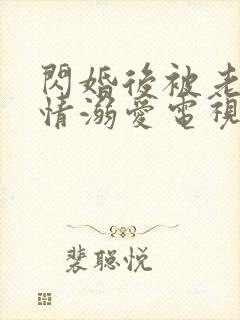 閃婚後被老
情溺愛電視
裴聪悦